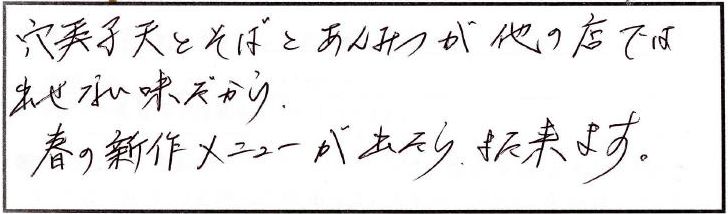 穴英子天とそばとあんみつが他の店では
出せない味だから、
春の新作メニューが出たら、また来ます。